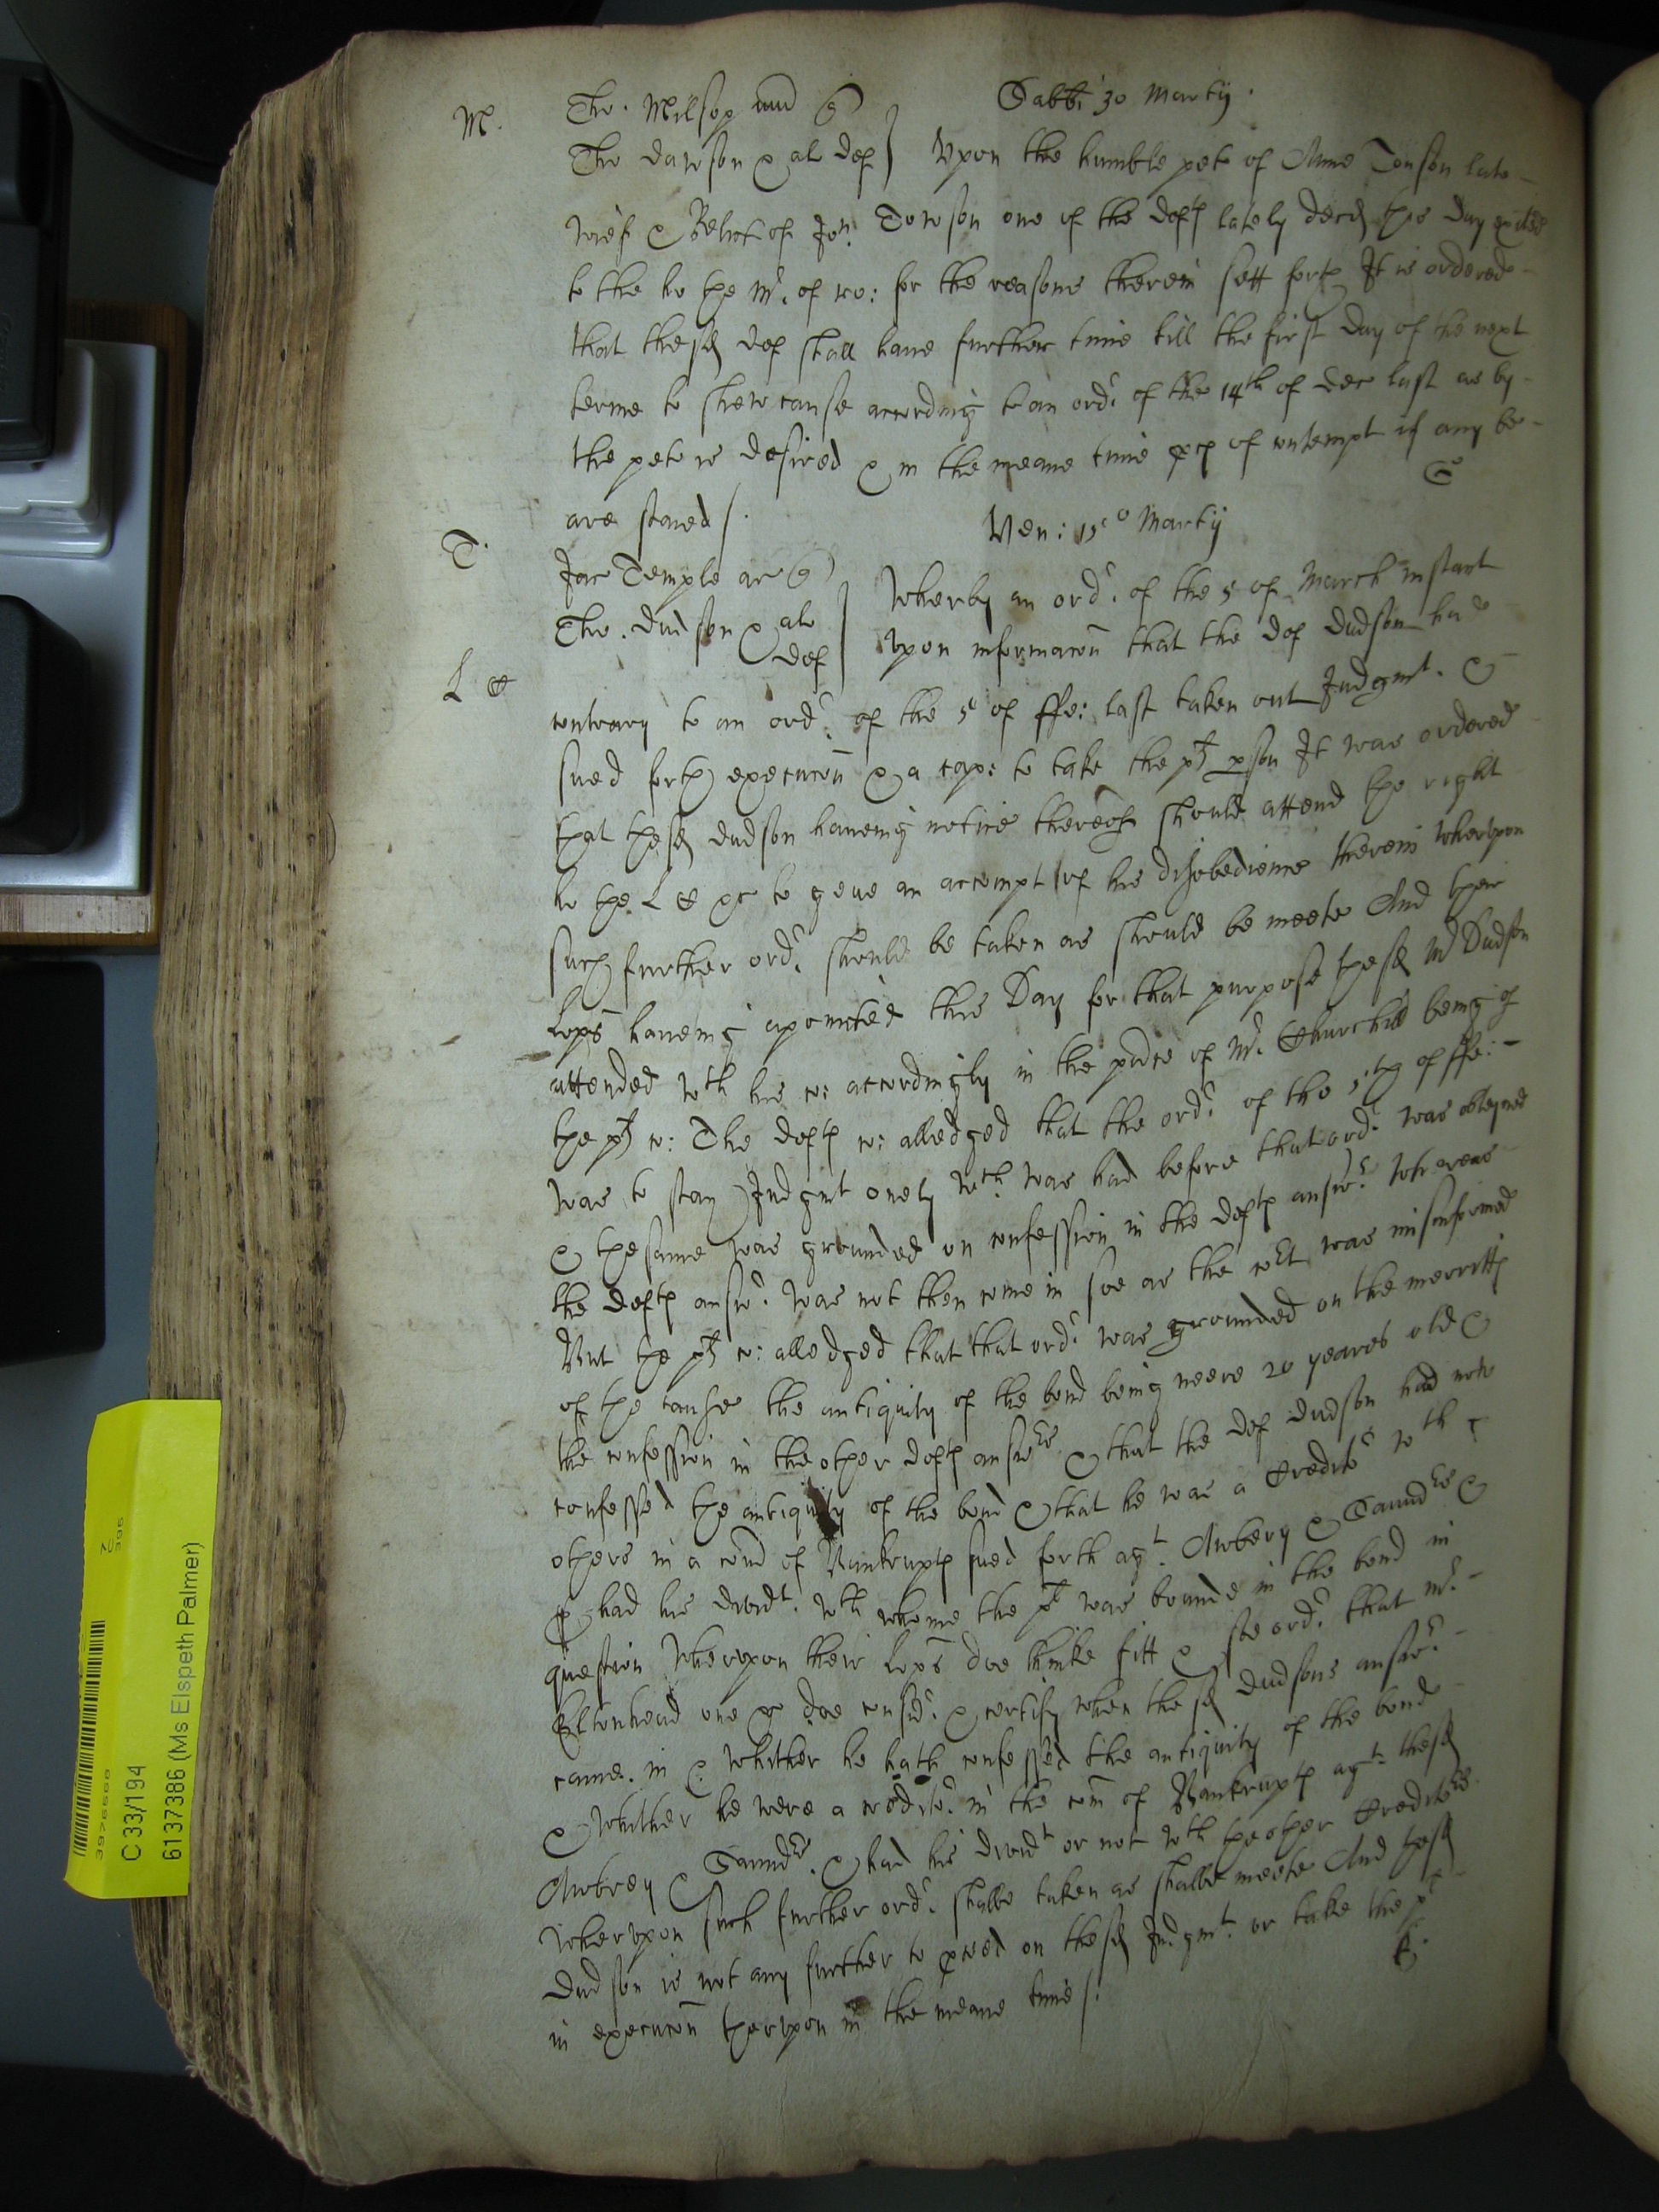 M. Tho. Millsop aund q Sabbti 30 Martij.
Tho Dawson & als def Vpon the humble peto of Anne Tonson late
wief & Relict of Jon. Towson one of the defts lately decd this day
to the ho the Mr. of ro: for the reasons therein sett forth It is ordered
that the sd def shall haue further time till the first day of the next
terme to shew cause according to an ordr. of the 14th of Dec last as by
the peto is desired & in the meane time pces of contempt if any be
are staied /.
Ven: 15o Martij
T. Jac Temple ar q Wherby an ordr. of the 5 of March instant
Tho. Dudson & als def vpon informacon that the def Dudson had
L C
contrary to an ordr. of the 5t of ffe: last taken out Judgmt. &
sued forth execucon & a cap: to take the pts pson It was ordered
that the sd Dudson haueing notice thereof should attend the right
ho the L C &c to geue an accompt of his disobedience therein wherevpon
such further ordr. should be taken as should be meete And their
lops haueing apointed this Day for that purpose the sd Mr Dudson
attended wth his co: accordingly in the pnce of Mr. Churchill being of
the pts co: The defts co: alledged that the ordr. of the 5th of ffe:
was to stay Judgmt onely wch. was had before that ordr. was obteyned
& the same was grounded on confession in the defts answr. whereas
the defts answr. was not then come in soe as the cort was misinformed
But the pts co: alledged that that ordr. was grounded on the merritts
of the cause the antiquity of the bond being neere 20 yeares old &
the confession in the other defts answrs & that the def Dudson had now
confessed the antiquity of the bond & that he was a Creditr wth
others in a comd of Bankrupts sued forth agt. Awbery & Saundrs &
& had his dividt. wth whome the pt was bounde in the bond in
question Wherevpon their lops doe thinke fitt & soe ordr. that Mr.
Eltonhead one &c doe considr. & certify when the sd Dudsons answr.
came in & whither he hath confessed the antiquity of the bond
& whither he were a creditr. in the com of Bankrupts agt. the sd
Awbrey & Saundrs. & had his dividt or not wth the other Creditrs.
Wherevpon such further ordr. shalbe taken as shalbe meete And the sd
Dudson is not any further to pceed on the sd Judgmt. or take the pt
in execucon therevpon in the meane time /.
C 33/194
6137386 (Ms Elspeth Palmer)